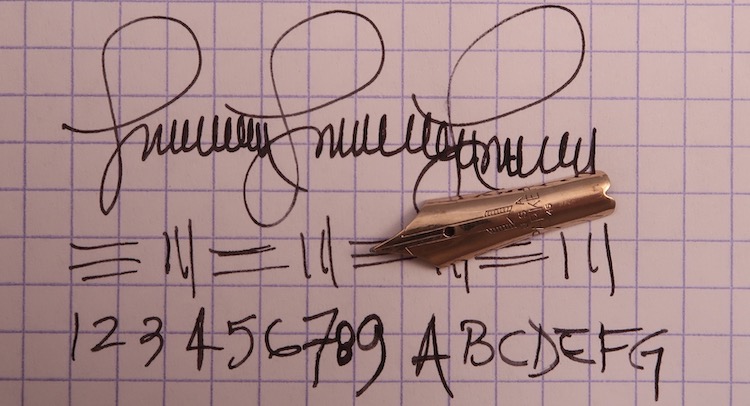 123456789 ABCDEFG